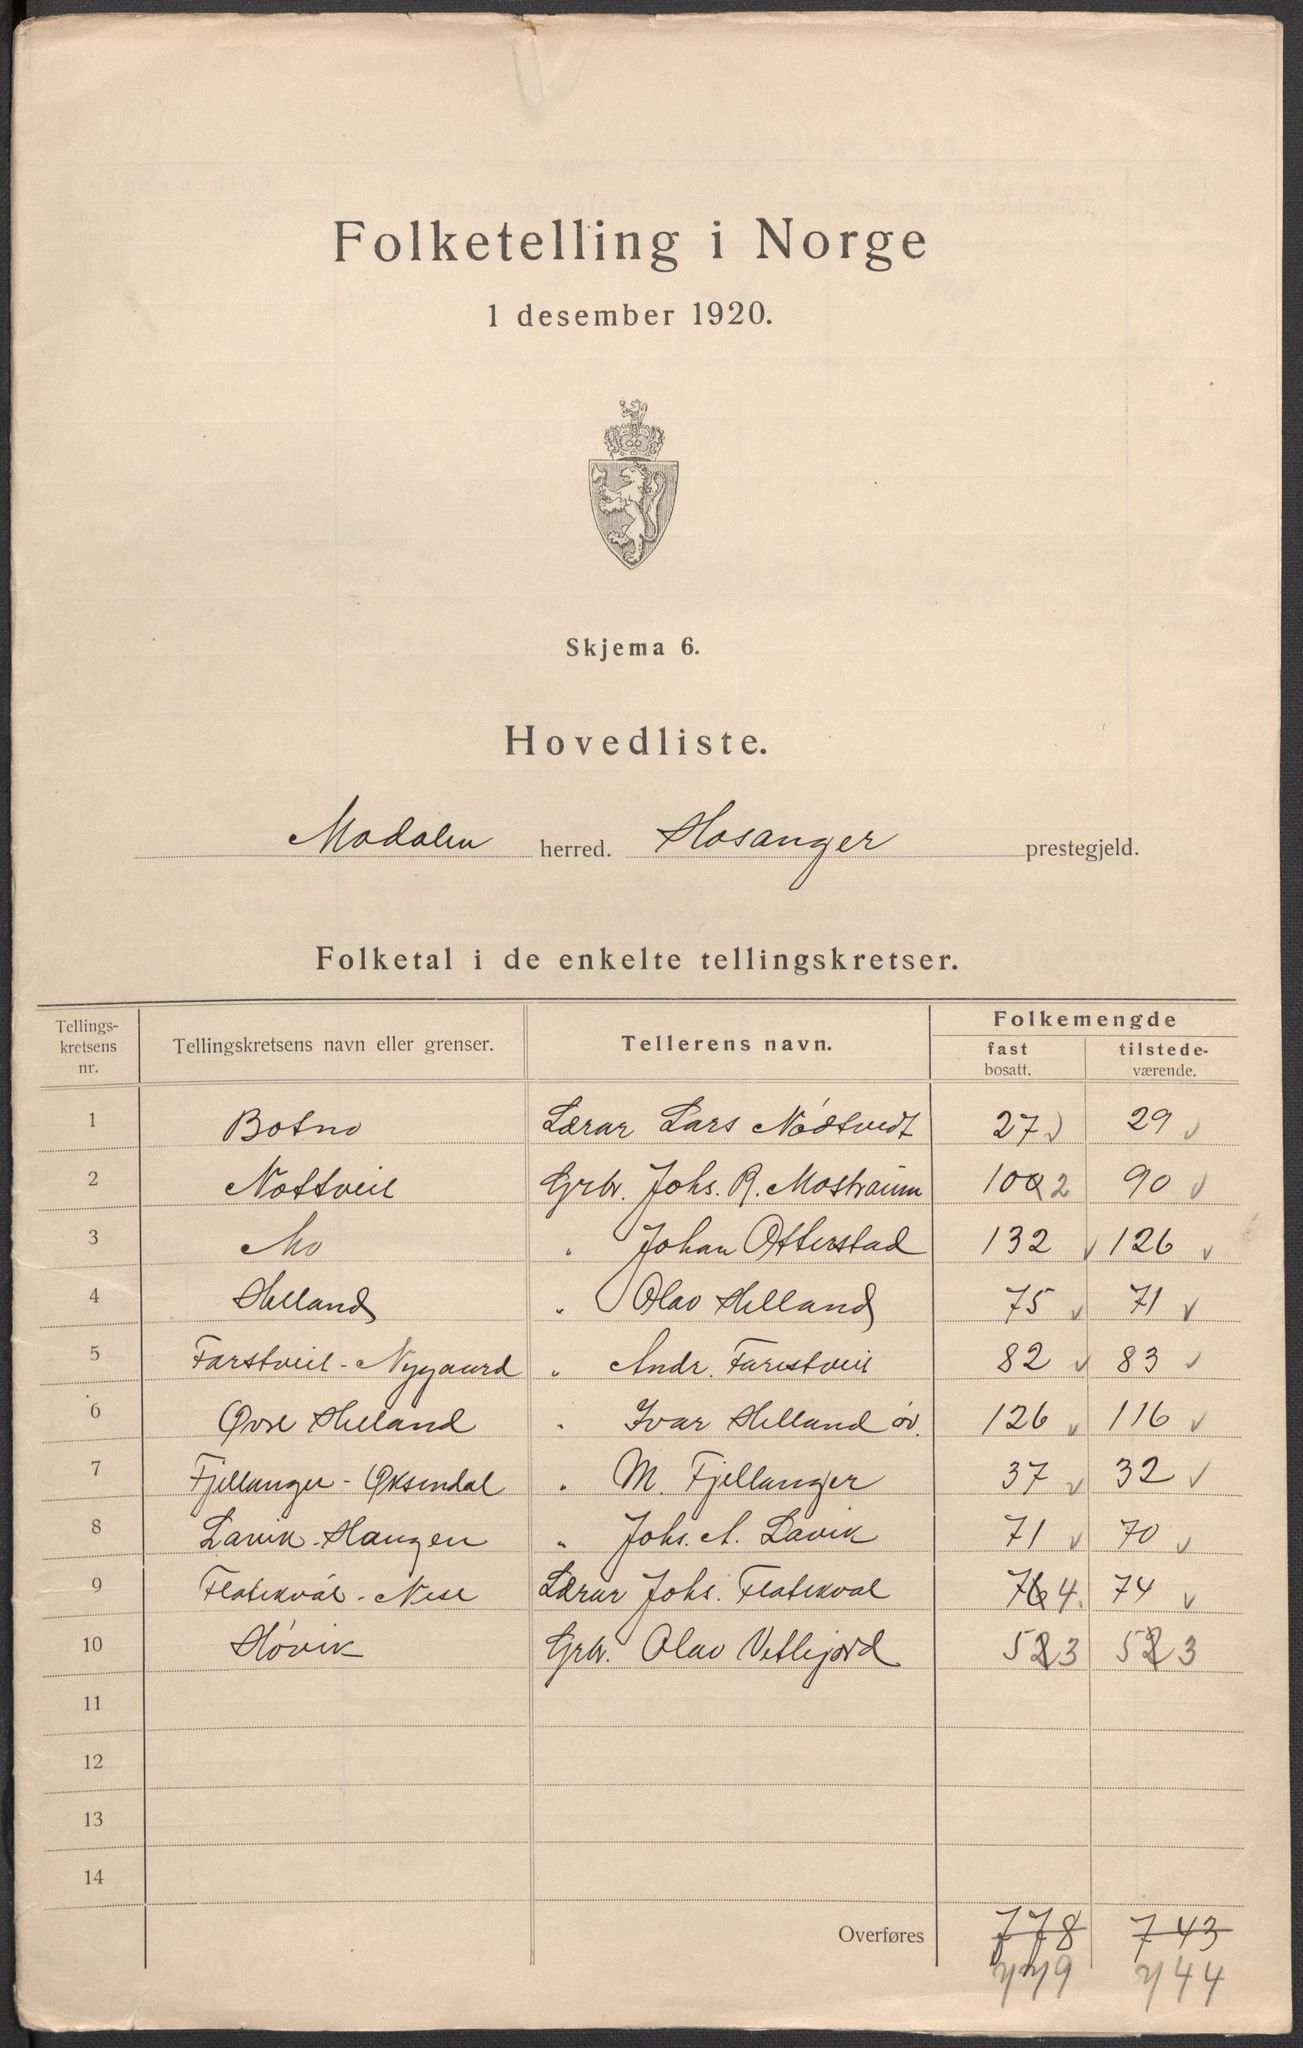 Folketelling i Norge
1 desember 1920.
Skjema 6.
Hovedliste.
Modalen herred. Hosanger prestegjeld.
Folketal i de enkelte tellingskretser.
Tellings-kretsens nr. Tellingskretsens navn eller grenser. Tellerens navn. Folkemengde fast bosatt. tilstede-værende.
1 Botno Lærar Lars Nódtvedt 27 29
2 Nottveit Grbr. Johs. R. Mostraum 100 2 90
3 Mo " Johan Otterstad 132 126
4 Helland " Olav Helland 75 71
5 Farstveit - Nygaard " Andr. Farestveit 82 83
6 Øvre Helland " Ivar Helland öv. 126 116
7 Fjellanger - Øksendal " M. Fjellanger 37 32
8 Lavik - Haugen " Johs. A. Lavik 71 70
9 Flatekvål - Nese Lærar Johs. Flatekval 76 4 74
10 Høvik Grbr. Olav Vetlejord 52 3 52 3
11
12
13
14
Overføres 778 743
779 744